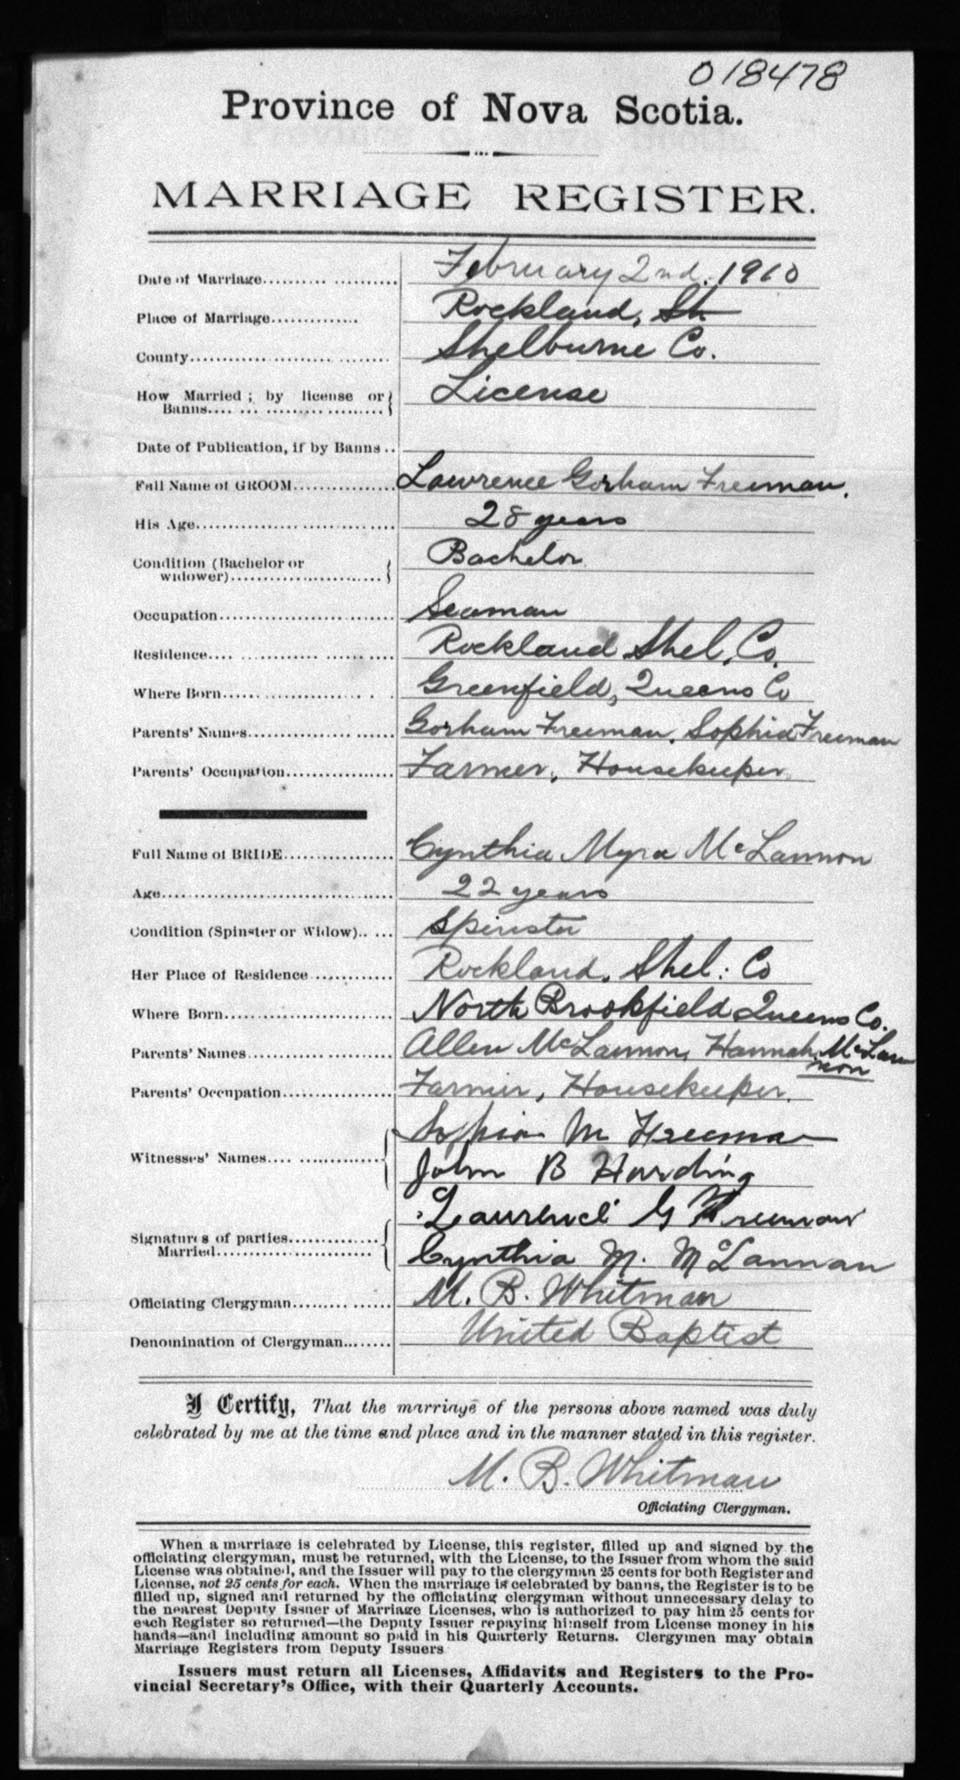 018478
Province of Nova Scotia.
MARRIAGE REGISTER.
Date of Marriage.......... ........... February 2nd. 1910
Place of Marriage............. Rockland, Sh
County......... ......... ........ Shelburne Co.
How Married; by license or License
Banns.... ... .......... ..........
Date of Publication, if by Banns ..
Full Name of GROOM............... Lawrence Gorham Freeman.
His Age.............. .... .... ...... 28 years
Condition (Bachelor or Bachelor
widower)......................
Occupation.......................... Seaman
Residence.... ............ ...... ..... Rockland Shel. Co.
Where Born...... .......... . . Greenfield, Queens Co
Parents' Names..................... Gorham Freeman. Sophia Freeman
Parents' Occupation............... Farmer, Housekeeper.
Full Name of BRIDE................ Cynthia Myra McLannon
Age................................... 22 years
Condition (Spinster or Widow).. ... Spinster
Her Place of Residence ............ Rockland, Shel: Co
Where Born......................... North Brookfield Queens Co.
Parents' Names..................... Allen McLannon, Hannah McLan
non
Parents' Occupation................ Farmer, Housekeeper.
M Freeman
Witnesses' Names.... ...............
John B Harding
Lawrence G Freeman
Signatures of parties.............
Married....................... Cynthia M. McLannan
Officiating Clergyman......... ...... M. B. Whitman
Denomination of Clergyman........ United Baptist
I Certify, That the marriage of the persons above named was duly
celebrated by me at the time and place and in the manner stated in this register.
M. B. Whitman
Officiating Clergyman.
When a marriage is celebrated by License, this register, filled up and signed by the
officiating clergyman, must be returned, with the License, to the Issuer from whom the said
License was obtained, and the Issuer will pay to the clergyman 25 cents for both Register and
License, not 25 cents for each. When the marriage is celebrated by banns, the Register is to be
filled up, signed and returned by the officiating clergyman without unnecessary delay to
the nearest Deputy Issuer of Marriage Licenses, who is authorized to pay him 25 cents for
each Register so returned—the Deputy Issuer repaying himself from License money in his
hands—and including amount so paid in his Quarterly Returns. Clergymen may obtain
Marriage Registers from Deputy Issuers
Issuers must return all Licenses, Affidavits and Registers to the Pro-
vincial Secretary's Office, with their Quarterly Accounts.